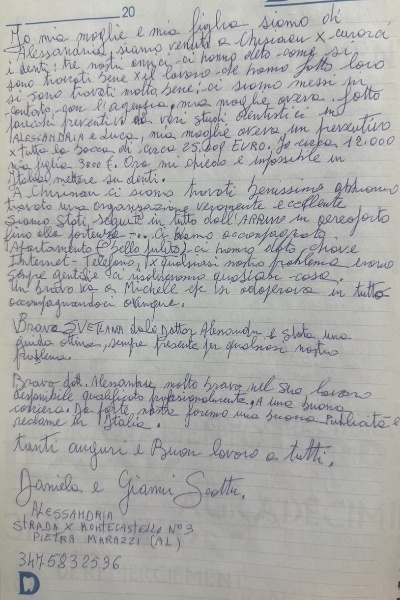 20
Io mia moglie e mia figlia siamo di
Alessandria, siamo venuti a Chisinau x curarci
i denti: tre nostri amici ci hanno detto come si
sono trovati bene x il lavoro che hanno fatto loro
si sono trovati molto bene; ci siamo messi in
contatto con l'agenzia, mia moglie aveva fatto
parecchi preventivi da vari studi dentistici in
ALESSANDRIA e Lucca, mia moglie aveva un preventivo
x tutta la bocca di circa 25.000 EURO. Io circa 12.000
mia figlia 3000 €. Ora mi chiedo è impossibile in
Italia mettere su denti.
A Chisinau ci siamo trovati benissimo abbiamo
trovato una organizzazione veramente eccellente
Siamo stati seguiti in tutto dall'ARRIVO in aereoporto
fino alla partenza -... Ci hanno accompagnati
Apartamento bello pulito, ci hanno dato chiave
Internet - Telefono, x qualsiasi nostro problema erano
sempre gentili e ci risolvevano qualsiasi cosa.
Un bravo va a Michelle che si adoperava in tutto
accompagnandoci ovunque.
Brava SVETLANA dal Dottor Alexandru è stata una
guida ottima, sempre presente per qualsiasi nostro
problema.
Bravo dott. Alesandru molto bravo nel suo lavoro
disponibile qualificato professionalmente. A una buona
carriera. Da parte nostra faremo una buona Pubblicità e
reclame in Italia.
tanti auguri e Buon lavoro a tutti.
Daniela e Gianni
ALESSANDRIA
STRADA X MONTECASTELLO N°3
PIETRA MARAZZI (AL)
3475832596
D